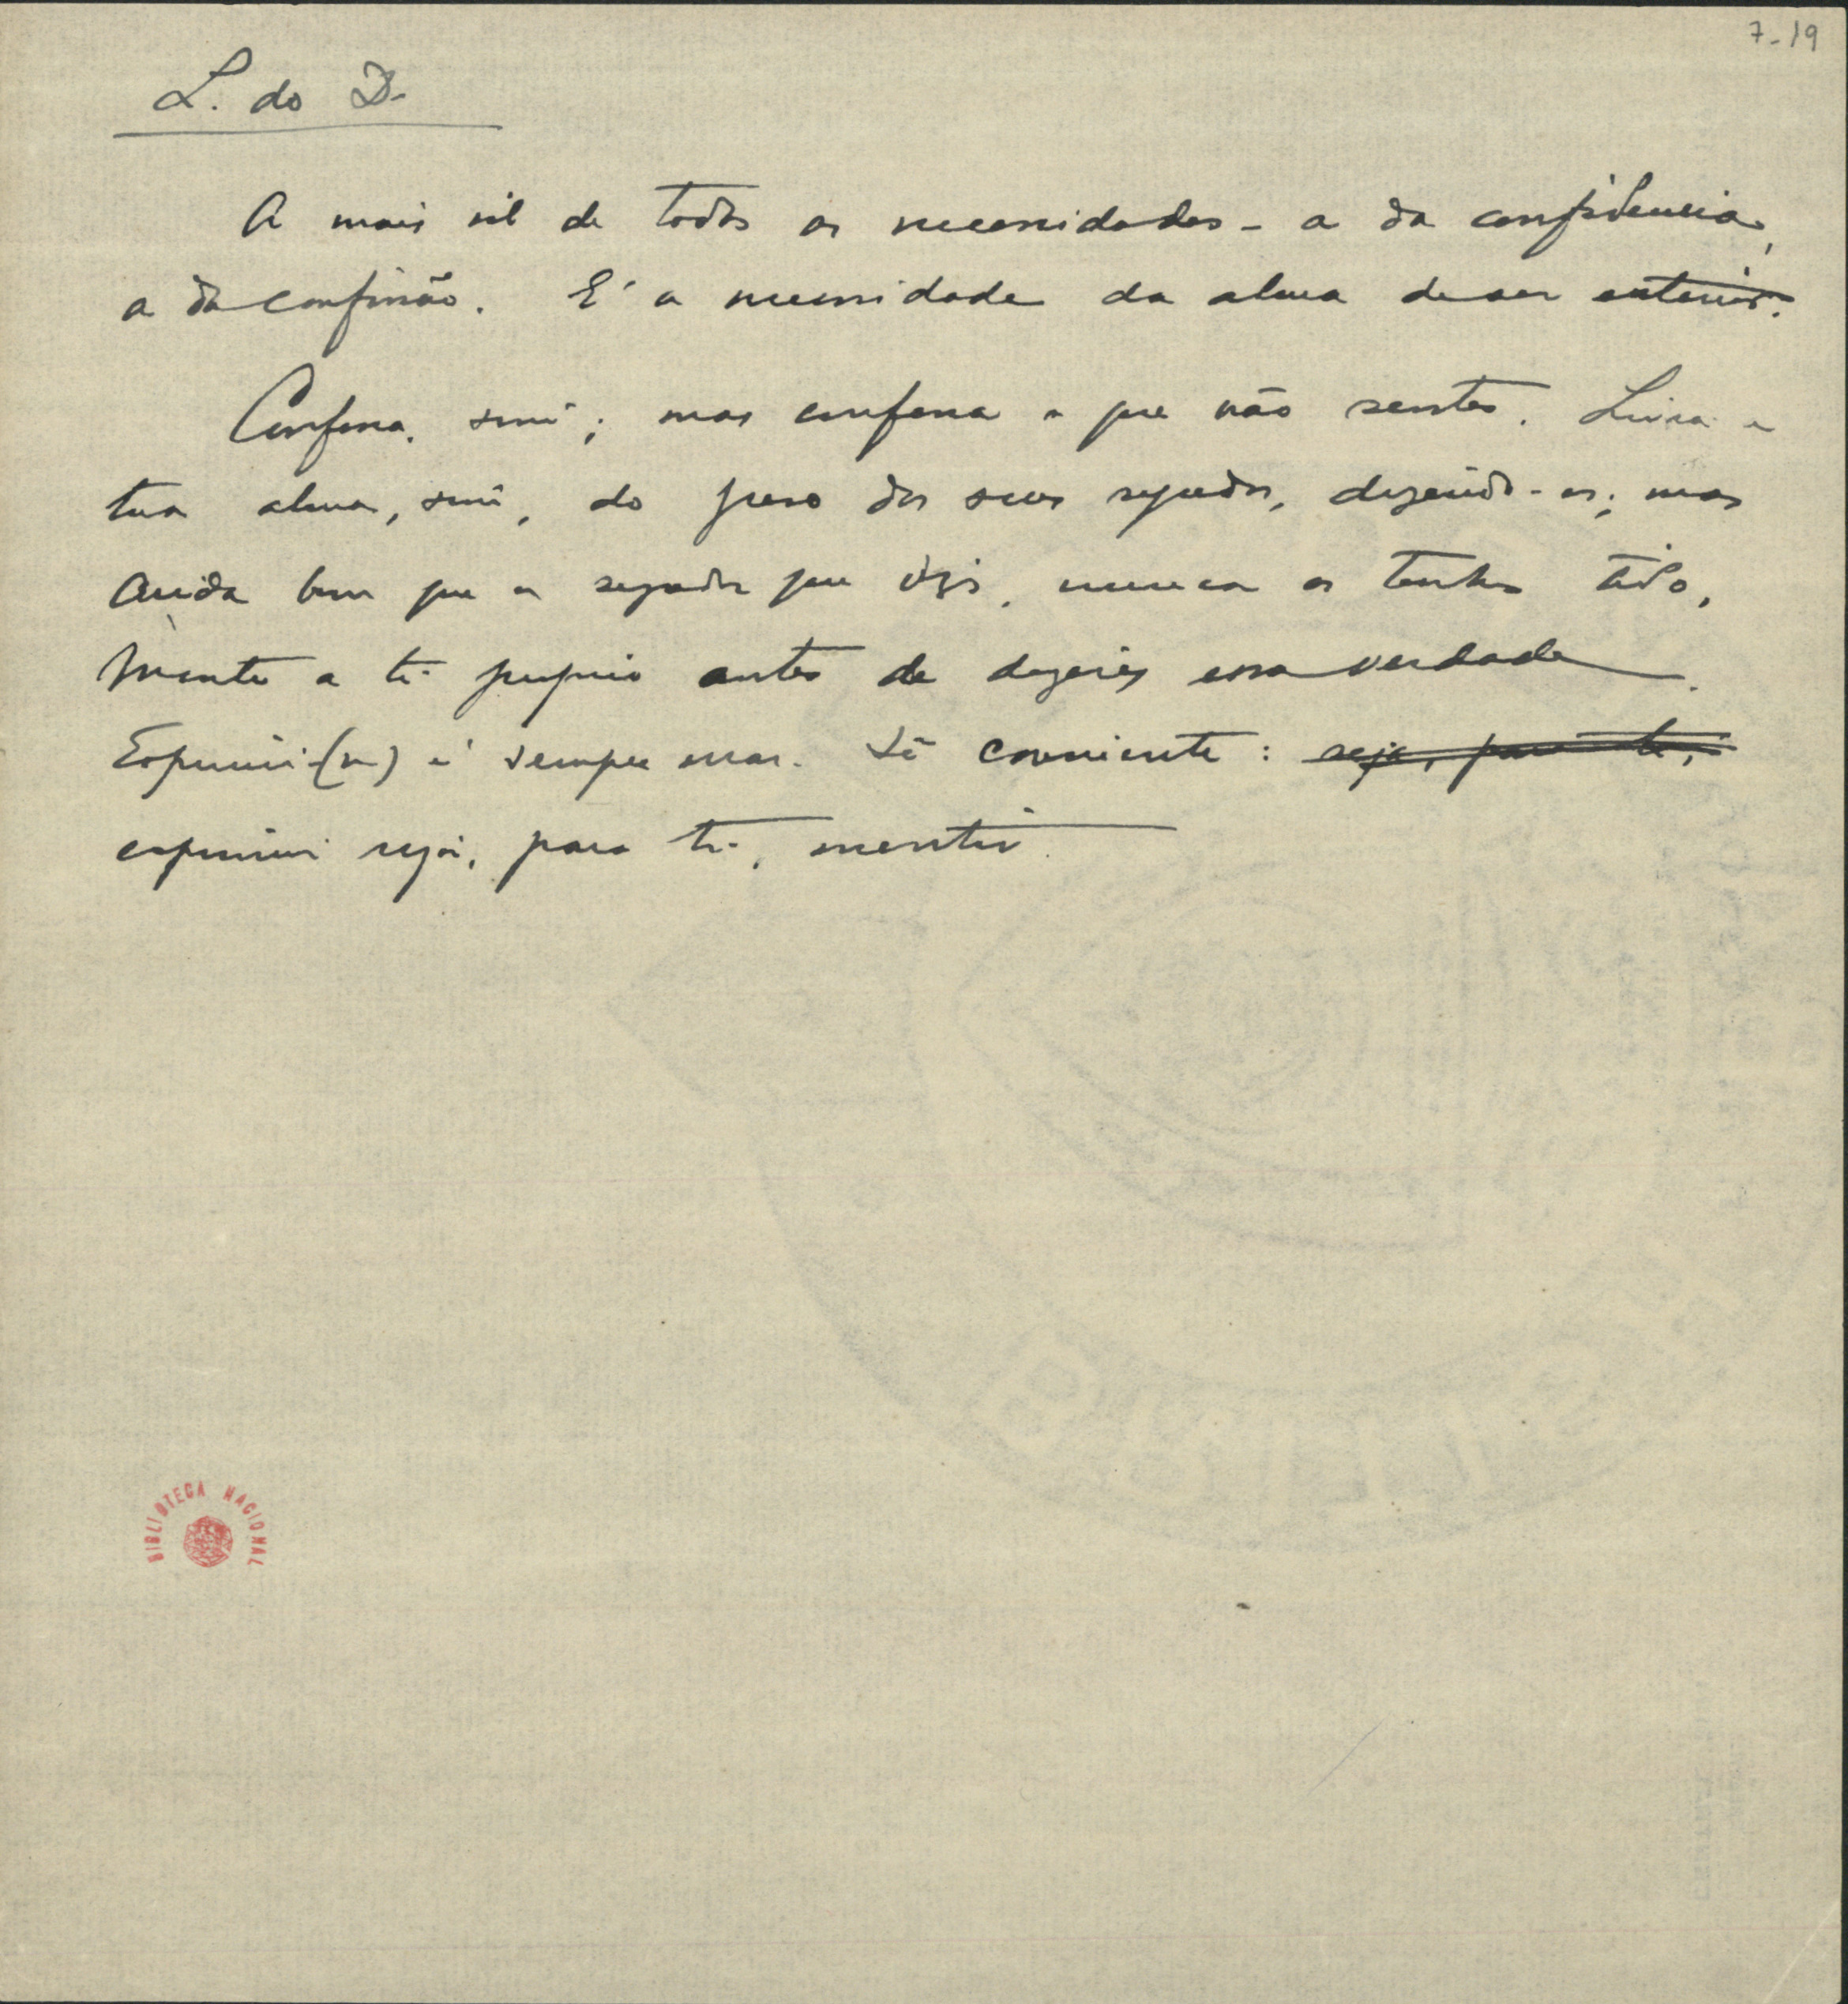 7-19
L. do D.
A mais vil de todas as necessidades - a da confidencia,
a da confissão. E' a necessidade da alma de ser exterior.
Confessa, sim; mas confessa o que não sentes. Livra a
tua alma, sim, do peso dos seus segredos, dizendo-os; mas
ainda bem que os segredos que dizes, nunca os tenhas tido.
Mente a ti proprio antes de dizeres essa verdade.
Exprimir(-se) é sempre errar. Sê consciente: seja, para ti,
exprimir seja, para ti, mentir.
BIBLIOTECA NACIONAL